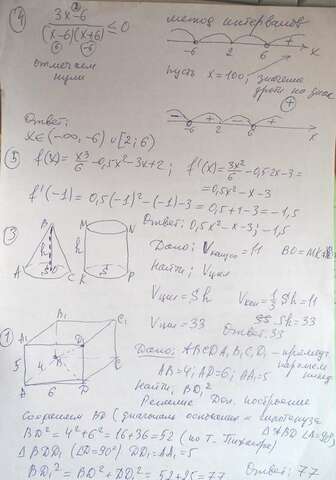 ④ 3x-6 / (x-6)(x+6) ≤ 0
метод интервалов
отмечаем нули
-6 2 6 x
пусть x=100, значение дроби на знак +
- + - +
-6 2 6 x
Ответ:
x∈(-∞,-6) ∪ [2;6)
⑤ f(x)= x3/6 -0,5x²-3x+2; f'(x)= 3x²/6 -0,5·2x-3=
=0,5x²-x-3
f'(-1)=0,5(-1)²-(-1)-3=0,5+1-3=-1,5
Ответ: 0,5x²-x-3; -1,5
③ Дано: Vконуса=11 BO=MK
Найти: Vцил
Vцил=Sh Vкон=1/3 Sh=11
Vцил=33 Sh=33
Ответ: 33
B h A S C
M N h S K P
① Дано: ABCDA₁B₁C₁D₁ - прямоуг. параллелепипед
AB=4; AD=6; AA₁=5
Найти: BD₁²
Решение Доп. построение
B₁ C₁ D₁ B C A D 5 4 6
Соединяем BD (диагональ основания = гипотенуза ΔABD ∠A=90°)
BD²=4²+6²=16+36=52 (по т. Пифагора)
ΔBDD₁ (∠D=90°) DD₁=AA₁=5
BD₁²=BD²+DD₁²=52+25=77 Ответ: 77